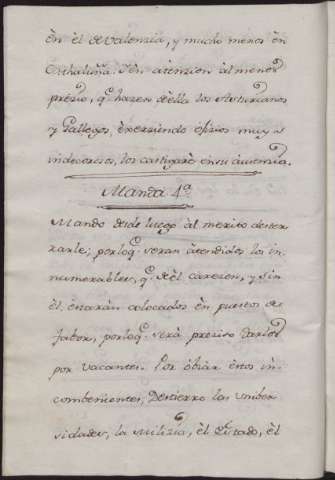 èn èl de Valenzia, y mucho menos èn
Cathaluña. I èn àtension àl menor
prezio, q.e hazen deella los Asturianos
y Gallegos, èxersiendo òfizios muy
indecorosos, los castigarè èn su àusenzia.
Manda 4.a
Mando desde luego àl merito dester-
rarle; porlo q.e seran àtendidos los in-
numerables, q.e de èl caresen, y sin
èl estaràn colocados èn puestos de
fabor, porlo q.e serà preziso darlos
por vacantes. Por òbiàr èstos in-
combenientes, Destierro las Uniber-
sidades, la Milizia, èl Estado, èl